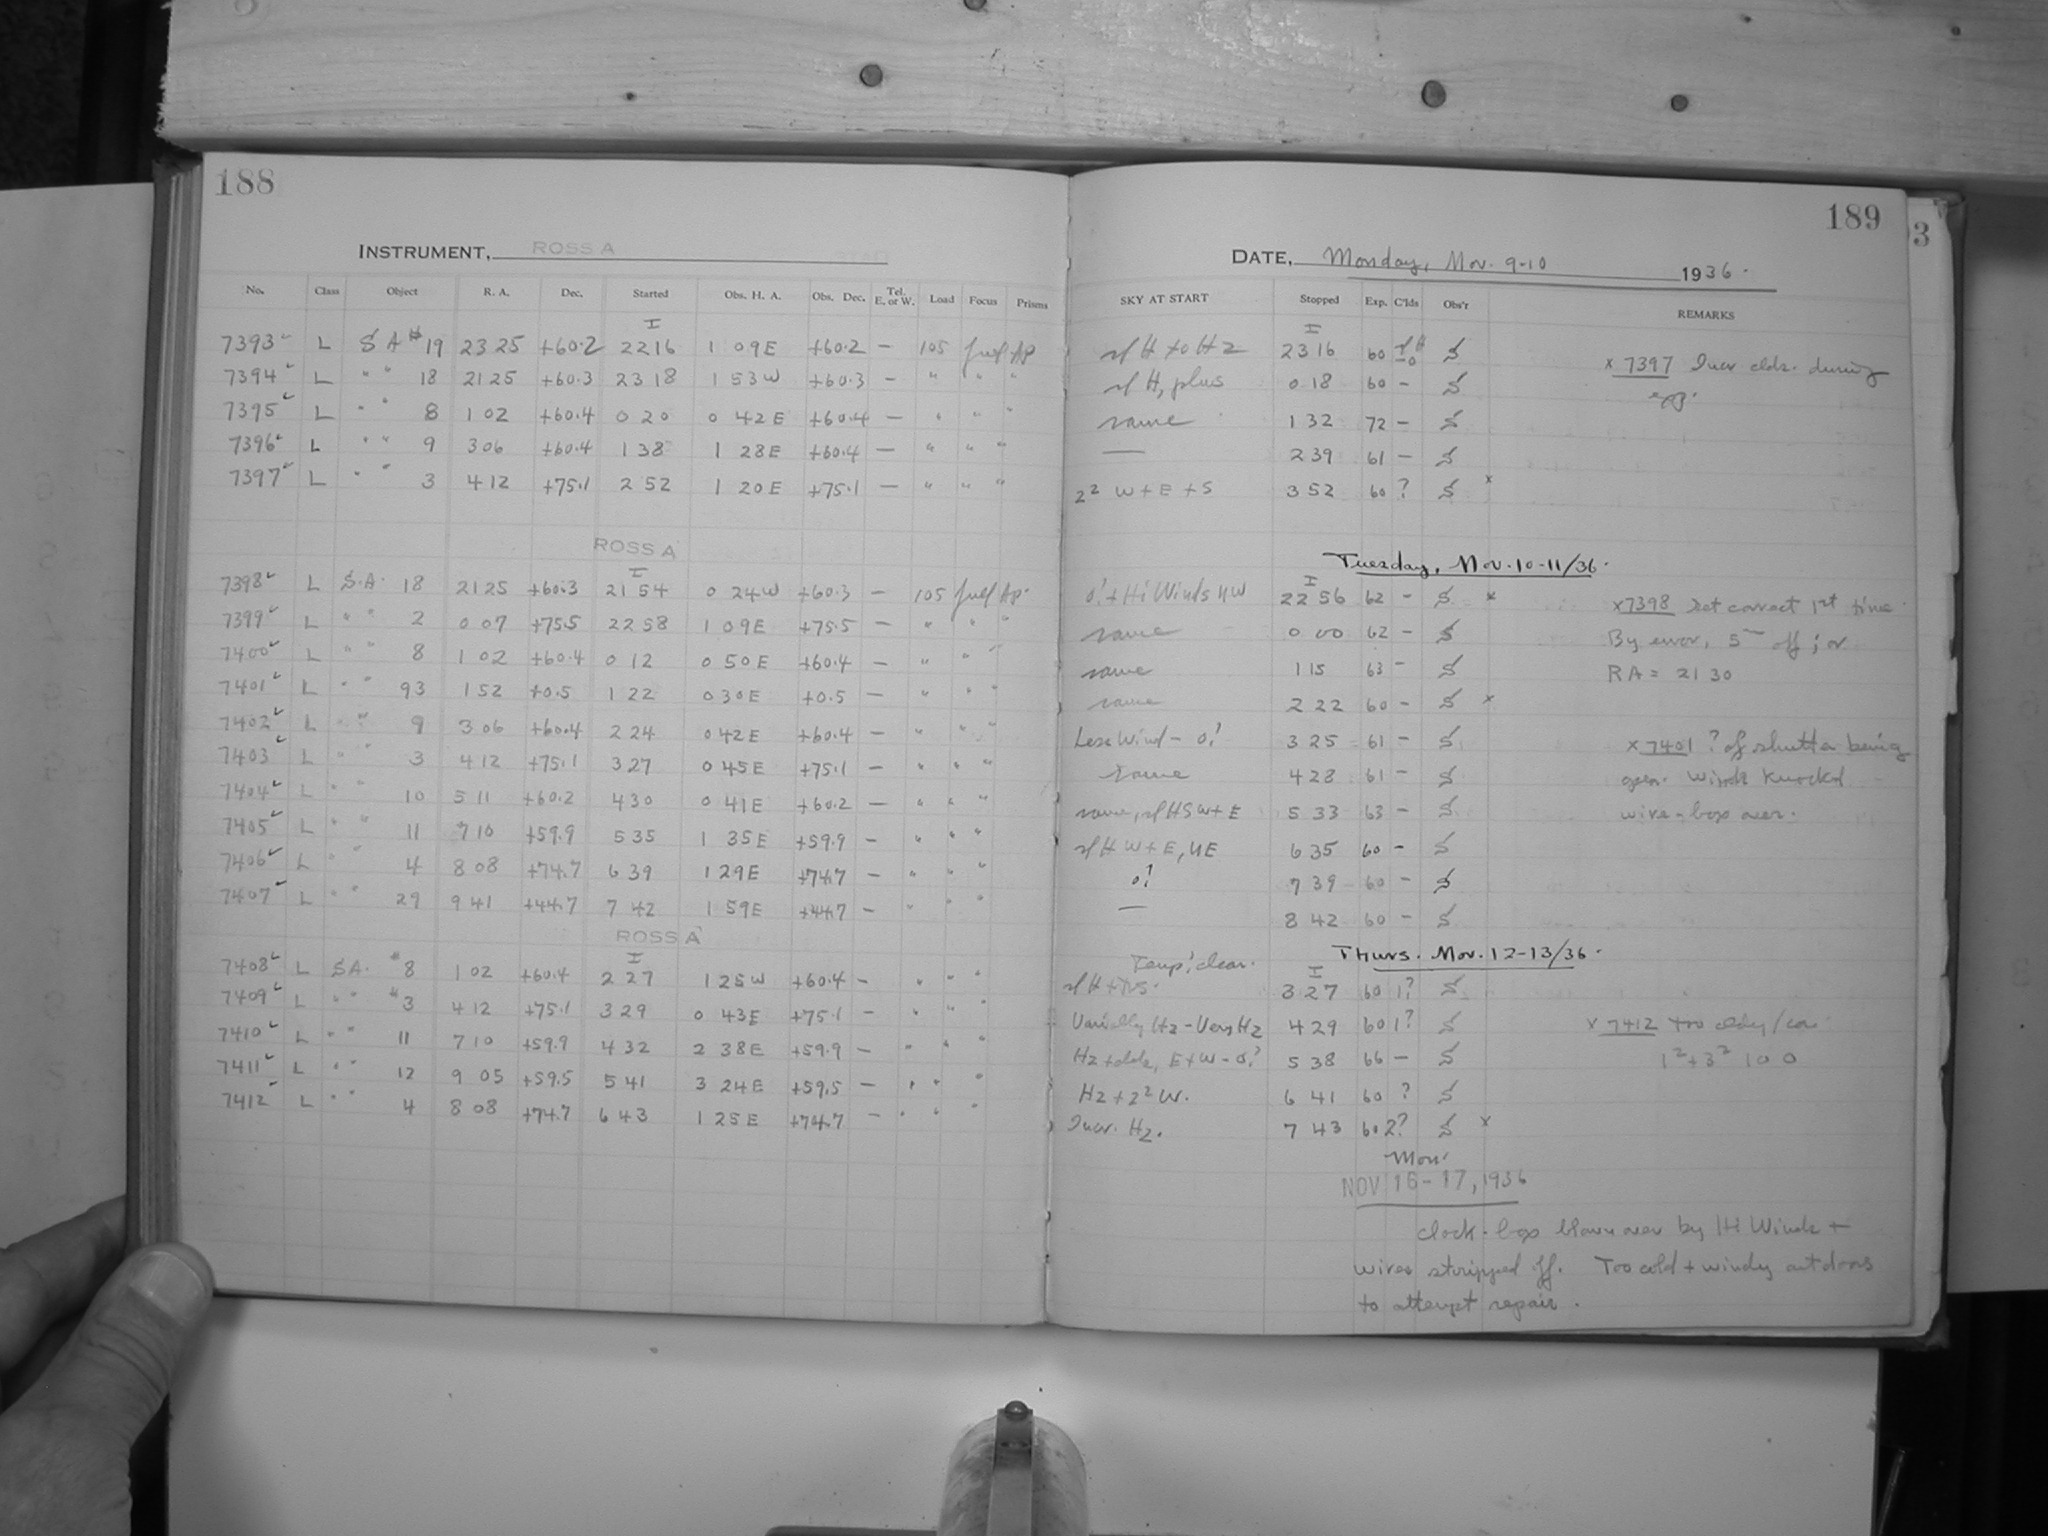 188
INSTRUMENT, ROSS A
No. Class Object R. A. Dec. Started Obs. H. A. Obs. Dec. Tel. E. or W. Load Focus Prisms
I
7393 L S A # 19 23 25 +60.2 22 16 1 09 E +60.2 — 105 full Ap
7394 L " " 18 21 25 +60.3 23 18 1 53 W +60.3 — " " "
7395 L " " 8 1 02 +60.4 0 20 0 42 E +60.4 — " " "
7396 L " " 9 3 06 +60.4 1 38 1 28 E +60.4 — " " "
7397 L " " 3 4 12 +75.1 2 52 1 20 E +75.1 — " " "
ROSS A
I
7398 L S.A. 18 21 25 +60.3 21 54 0 24 W +60.3 — 105 full Ap.
7399 L " " 2 0 07 +75.5 22 58 1 09 E +75.5 — " " "
7400 L " " 8 1 02 +60.4 0 12 0 50 E +60.4 — " " "
7401 L " " 93 1 52 +0.5 1 22 0 30 E +0.5 — " " "
7402 L " " 9 3 06 +60.4 2 24 0 42 E +60.4 — " " "
7403 L " " 3 4 12 +75.1 3 27 0 45 E +75.1 — " " "
7404 L " " 10 5 11 +60.2 4 30 0 41 E +60.2 — " " "
7405 L " " 11 7 10 +59.9 5 35 1 35 E +59.9 — " " "
7406 L " " 4 8 08 +74.7 6 39 1 29 E +74.7 — " " "
7407 L " " 29 9 41 +44.7 7 42 1 59 E +44.7 — " " "
ROSS A
I
7408 L SA. # 8 1 02 +60.4 2 27 1 25 W +60.4 — " " "
7409 L " " # 3 4 12 +75.1 3 29 0 43 E +75.1 — " " "
7410 L " " 11 7 10 +59.9 4 32 2 38 E +59.9 — " " "
7411 L " " 12 9 05 +59.5 5 41 3 24 E +59.5 — " " "
7412 L " " 4 8 08 +74.7 6 43 1 25 E +74.7 — " " "
189
DATE, Monday, Nov. 9-10 1936.
SKY AT START Stopped Exp. C'lds Obs'r REMARKS
I
sl H to Hz 23 16 60 sl H -0 S
x 7397 Incr clds. during
exp.
sl H, plus 0 18 60 — S
same 1 32 72 — S
— 2 39 61 — S
2² W + E + S 3 52 60 ? S x
Tuesday, Nov. 10-11/36.
I
0! + Hi Winds NW 22 56 62 — S x
x 7398 Set correct 1st time.
same 0 00 62 — S
By error, 5m off; or
same 1 15 63 — S
RA = 21 30
same 2 22 60 — S x
Less Wind — 0! 3 25 61 — S
x 7401 ? of shutter being
same 4 28 61 — S
open. Winds Knocked
same, sl H S W + E 5 33 63 — S
wire-box over.
sl H W + E, NE 6 35 60 — S
0! 7 39 60 — S
— 8 42 60 — S
Thurs. Nov. 12-13/36.
Temp! clear. I
sl H 3 27 60 1? S
Variably Hz - Very Hz 4 29 60 1? S
x 7412 too cldy/
Hz + clds, E + W - 0! 5 38 66 — S
1² + 3² 10 0
Hz + 2² W. 6 41 60 ? S
Incr. Hz. 7 43 60 2? S x
Mon.
NOV 16-17, 1936
Clock-box blown over by Hi Winds +
wires stripped off. Too cold + windy outdoors
to attempt repair.